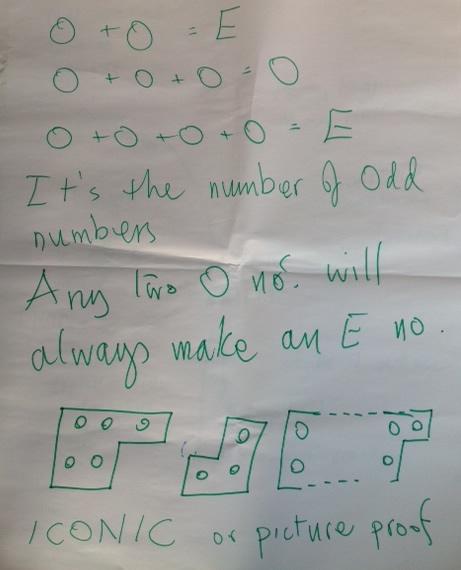 O + O = E
O + O + O = O
O + O + O + O = E
It's the number of odd
numbers
Any two O nos. will
always make an E no.
ICONIC or picture proof